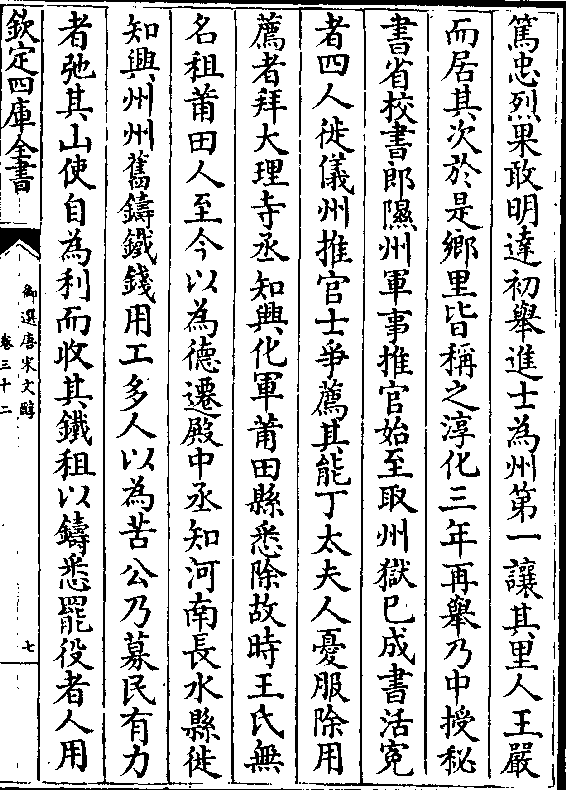 篤忠烈果敢明達初舉進士為州第一讓其里人王嚴
而居其次於是鄉里皆稱之淳化三年再舉乃中授秘
書省校書郎隰州軍事推官始至取州獄已成書活寃
者四人徙儀州推官士爭薦其能丁太夫人憂服除用
薦者拜大理寺丞知興化軍莆田縣悉除故時王氏無
名租莆田人至今以為德遷殿中丞知河南長水縣徙
知興州州舊鑄鐵錢用工多人以為苦公乃募民有力
者弛其山使自為利而收其鐵租以鑄悉罷役者人用
欽定四庫全書
御選唐宋文醇
卷三十二
七